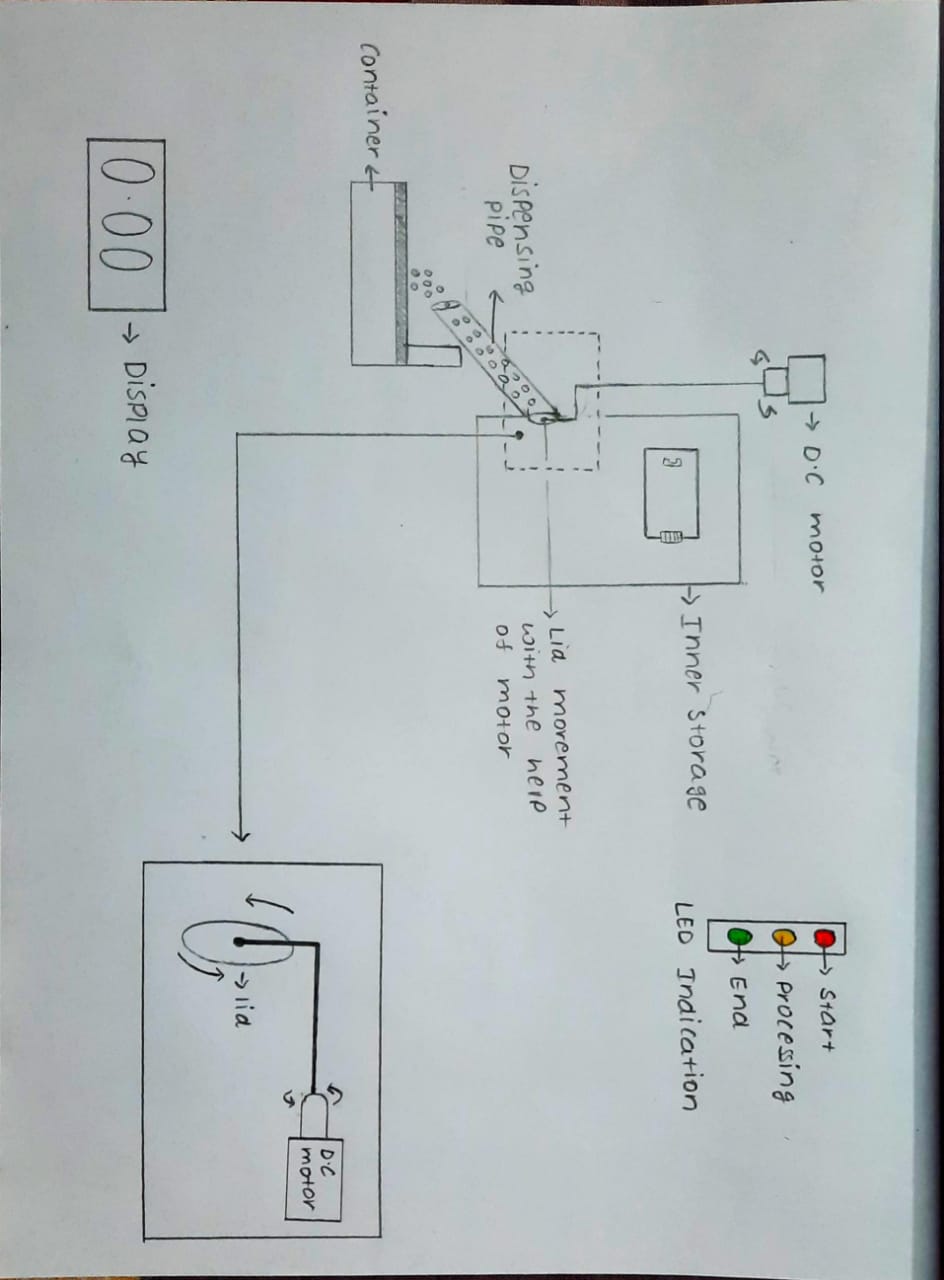 D.C motor
Start
Processing
End
LED Indication
Inner storage
Lid movement
with the help
of motor
Dispensing
pipe
Container
D.C
motor
lid
0.00
Display